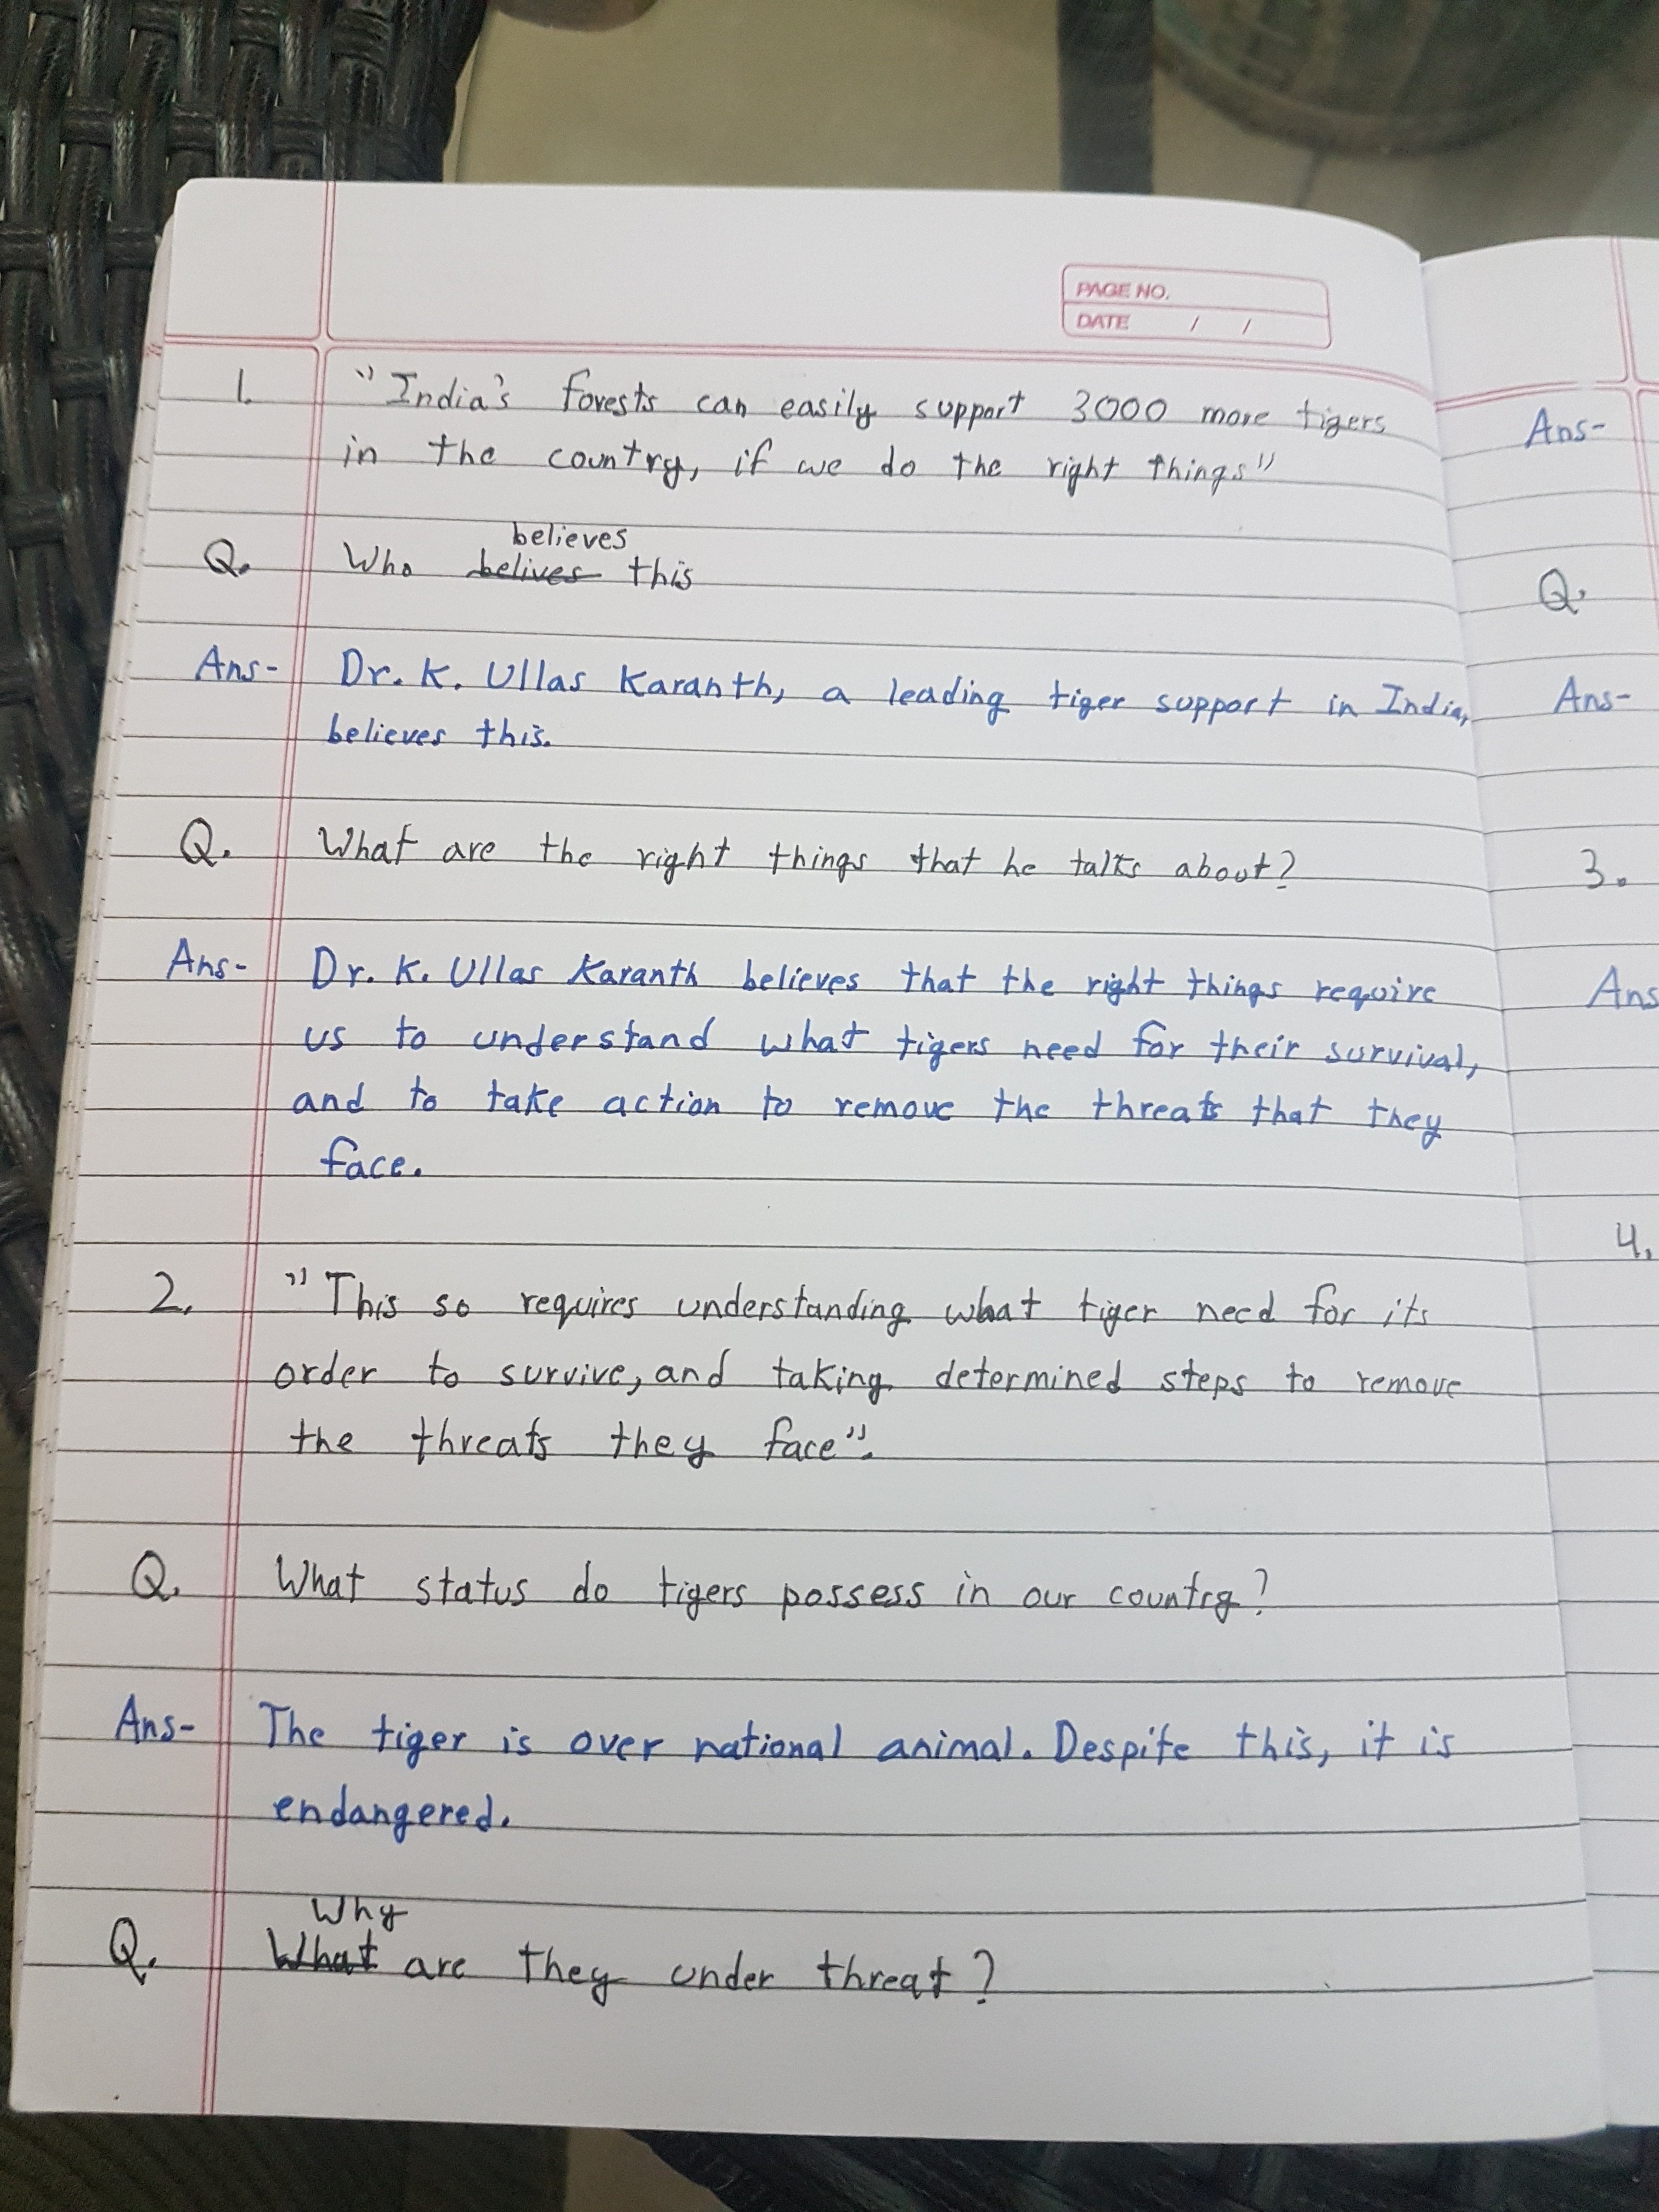 PAGE NO.
DATE / /
1. "India's forests can easily support 3000 more tigers
in the country, if we do the right things"
believes
Q. Who belives this
Ans- Dr. K. Ullas Karanth, a leading tiger support in India,
believes this.
Q. What are the right things that he talks about?
Ans- Dr. K. Ullas Karanth believes that the right things require
us to understand what tigers need for their survival,
and to take action to remove the threats that they
face.
2. "This so requires understanding what tiger need for its
order to survive, and taking determined steps to remove
the threats they face".
Q. What status do tigers possess in our country?
Ans- The tiger is over national animal. Despite this, it is
endangered.
Why
Q. What are they under threat?
Ans-
Q.
Ans-
3.
Ans
4.